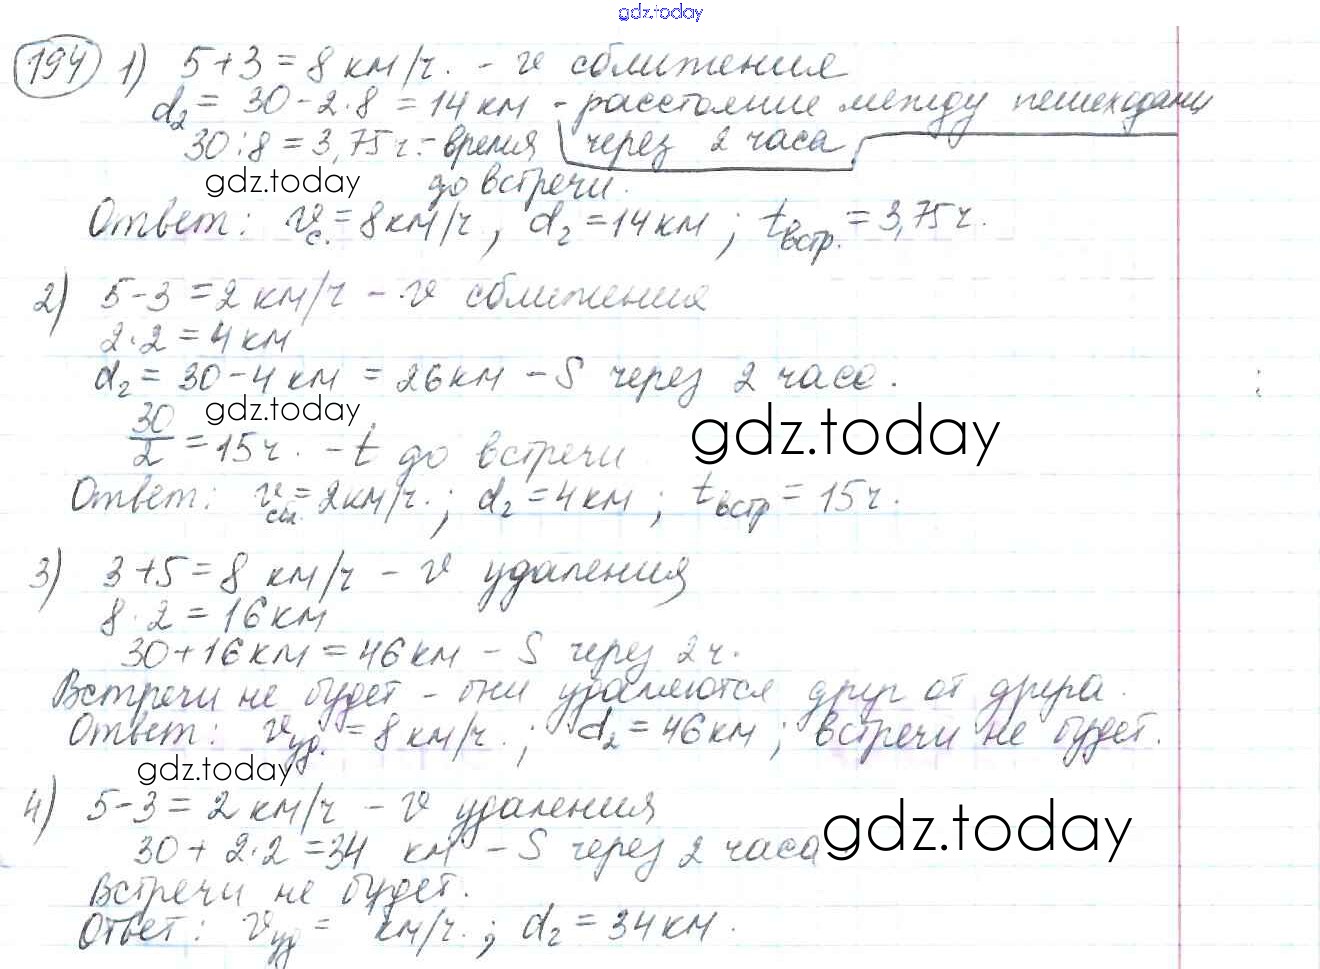 gdz.today
194 1) 5+3=8 км/ч. - v сближения
d₂ = 30-2·8 = 14 км - расстояние между пешеходами
30:8=3,75ч.- время через 2 часа
gdz.today до встречи.
Ответ: v с. = 8км/ч, d₂=14 км; t встр. = 3,75ч.
2) 5-3=2 км/ч - v сближения
2·2=4 км
d₂ = 30-4 км = 26 км - S через 2 часа.
gdz.today
30/2 = 15ч. - t до встречи
gdz.today
Ответ: v сбл. = 2км/ч.; d₂=4 км; t встр = 15ч.
3) 3+5=8 км/ч - v удаления
8·2=16 км
30+16 км=46 км - S через 2ч.
Встречи не будет - они удаляются друг от друга.
Ответ: v уд. = 8 км/ч.; d₂=46 км; встречи не будет.
gdz.today
4) 5-3=2 км/ч - v удаления
gdz.today
30+2·2=34 км - S через 2 часа
Встречи не будет.
Ответ: v уд = км/ч.; d₂=34 км.